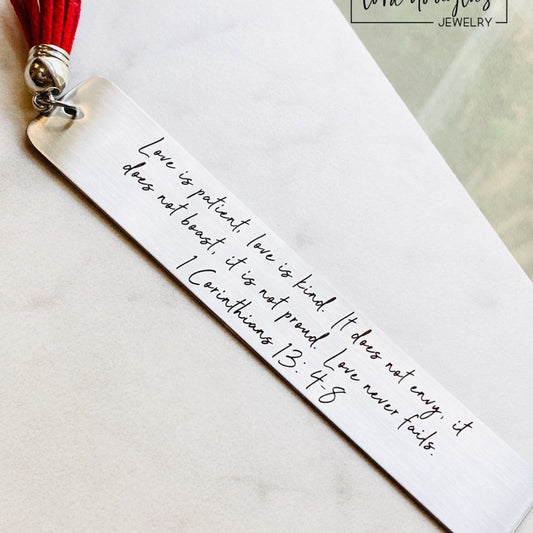 JEWELRY
Love is patient, love is kind. It does not envy, it
does not boast, it is not proud. Love never fails.
1 Corinthians 13: 4-8